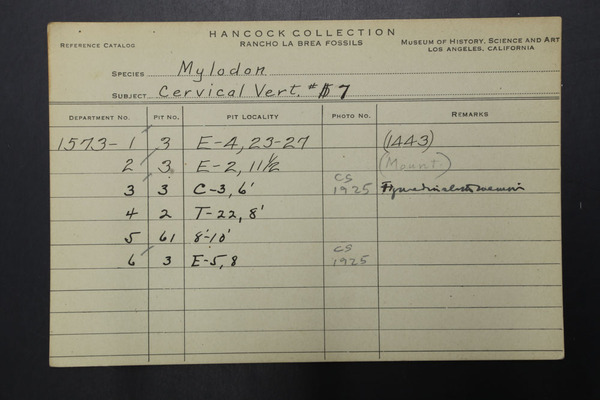 HANCOCK COLLECTION
REFERENCE CATALOG RANCHO LA BREA FOSSILS MUSEUM OF HISTORY, SCIENCE AND ART
LOS ANGELES, CALIFORNIA
SPECIES Mylodon
SUBJECT Cervical Vert. # 7
DEPARTMENT NO. PIT NO. PIT LOCALITY PHOTO NO. REMARKS
1573-1 3 E-4, 23-27 (1443)
2 3 E-2, 11½ (Mount.)
3 3 C-3, 6' CS 1925
4 2 T-22, 8'
5 61 8'-10'
6 3 E-5, 8 CS 1925